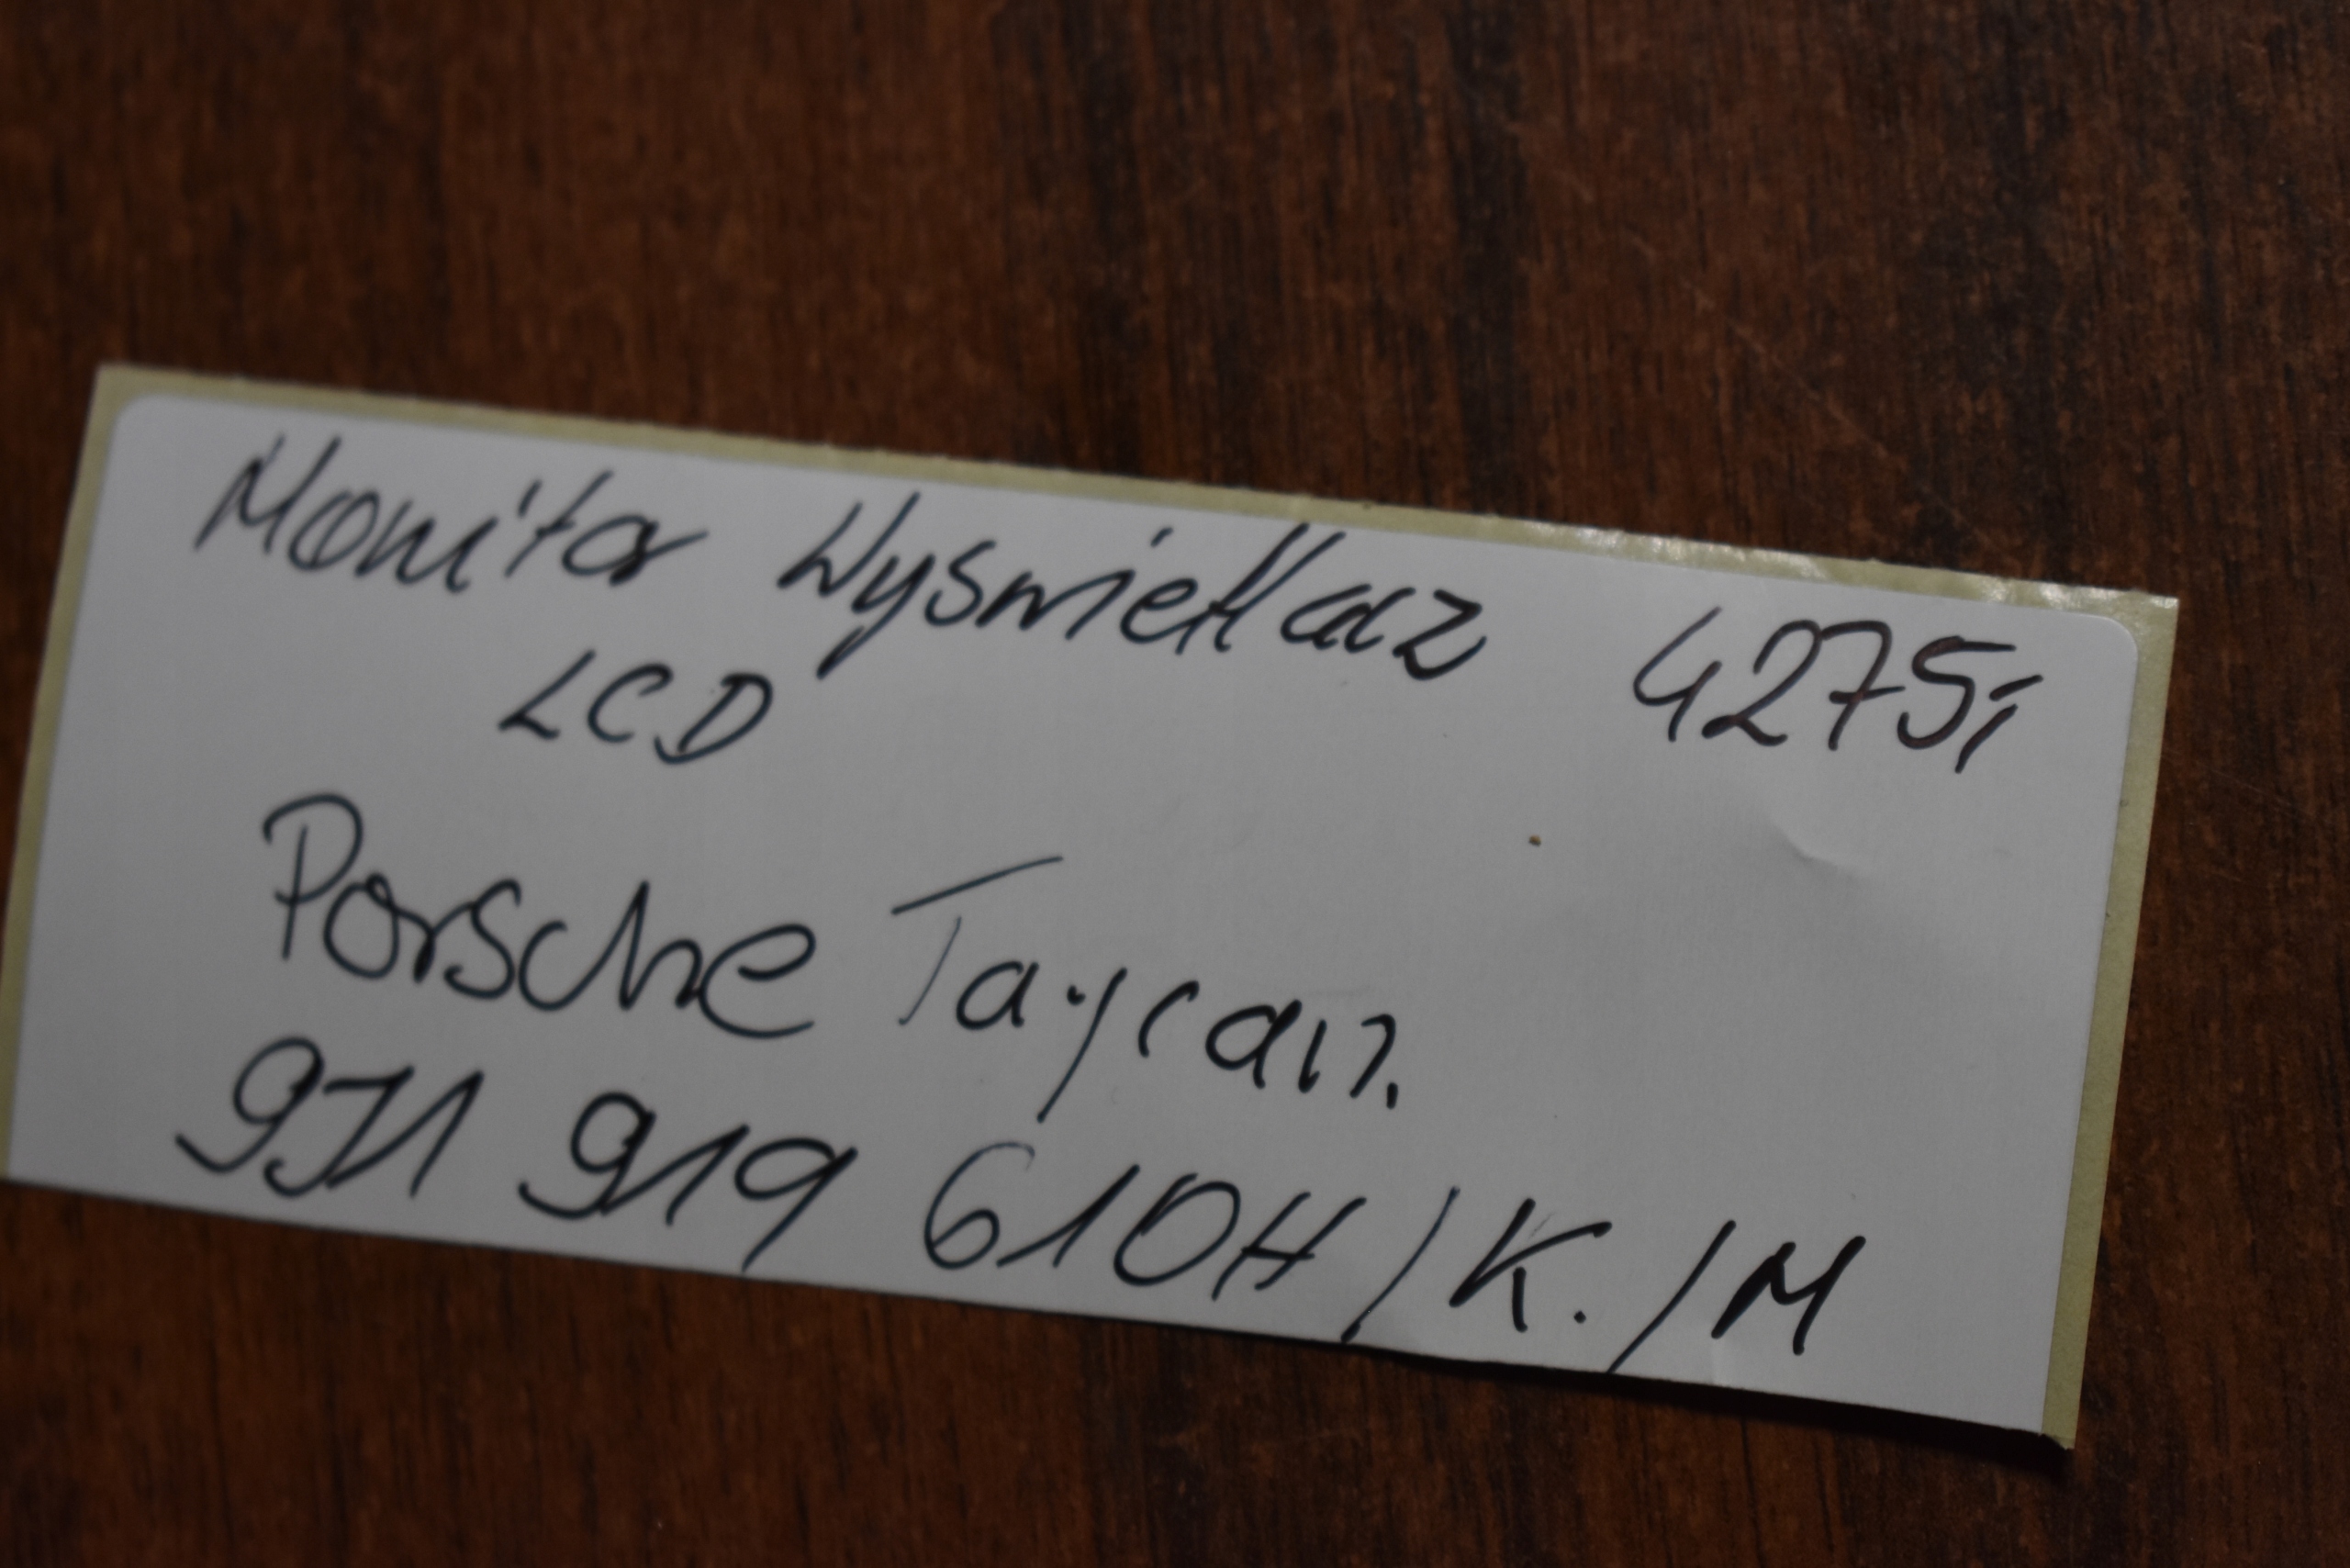 Monitor Wyświetlacz 4275;
LCD
Porsche Taycan.
971 919 610H/K./M